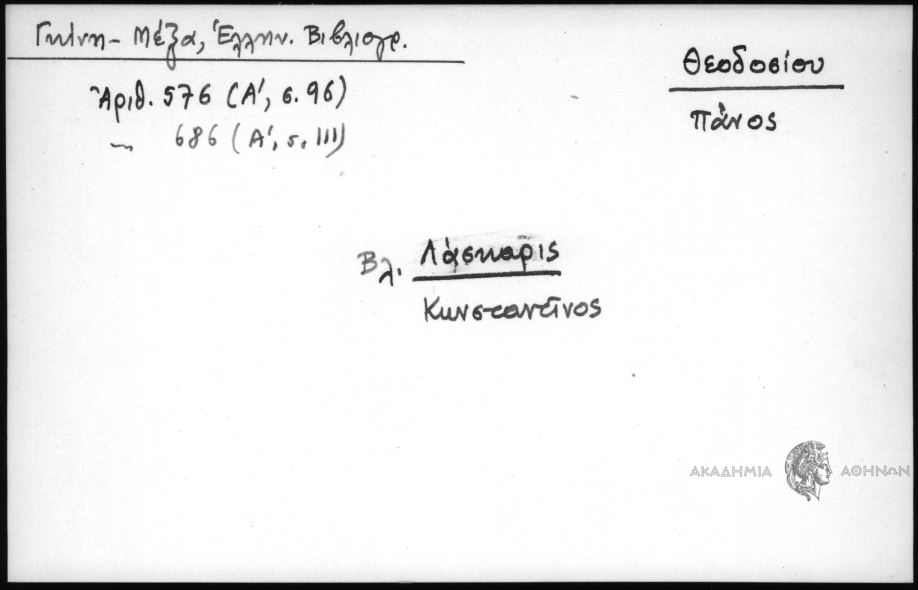 Γκίνη - Μέξα, Ἑλλην. Βιβλιογρ.
Θεοδοσίου
Πάνος
Ἀριθ. 576 (Α', σ. 96)
〃 686 (Α', σ. 111)
Βλ. Λάσκαρις
Κωνσταντῖνος
ΑΚΑΔΗΜΙΑ ΑΘΗΝΩΝ